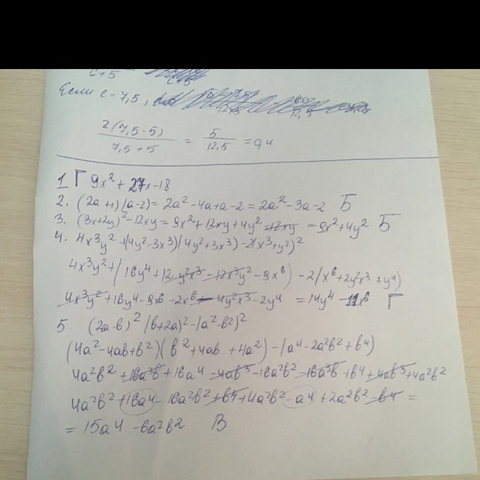 с+5
Если с-7,5,
2(7,5-5) / 7,5+5 = 5 / 12,5 = 0,4
1 Г 9x² + 27x-18
2. (2a+1)(a-2)= 2a²-4a+a-2=2a²-3a-2 Б
3. (3x+2y)²-12xy = 9x²+12xy+4y²-12xy - 9x²+4y² Б
4. 4x³y²+(4y²-3x³)(4y²+3x³)-2(x³+y²)²
4x³y²+(16y⁴+12y²x³-12x³y²-9x⁶)-2(x⁶+2y²x³+y⁴)
4x³y²+16y⁴-9x⁶-2x⁶-4y²x³-2y⁴ = 14y⁴-11x⁶ Г
5. (2a-b)²(b+2a)²-(a²-b²)²
(4a²-4ab+b²)(b²+4ab+4a²)-(a⁴-2a²b²+b⁴)
4a²b²+16a³b+16a⁴-4ab³-16a²b²-16a³b+b⁴+4ab³+4a²b²
4a²b²+16a4-16a²b²+b4+4a²b²-a4+2a²b²-b4 =
= 15a4-6a²b2 В